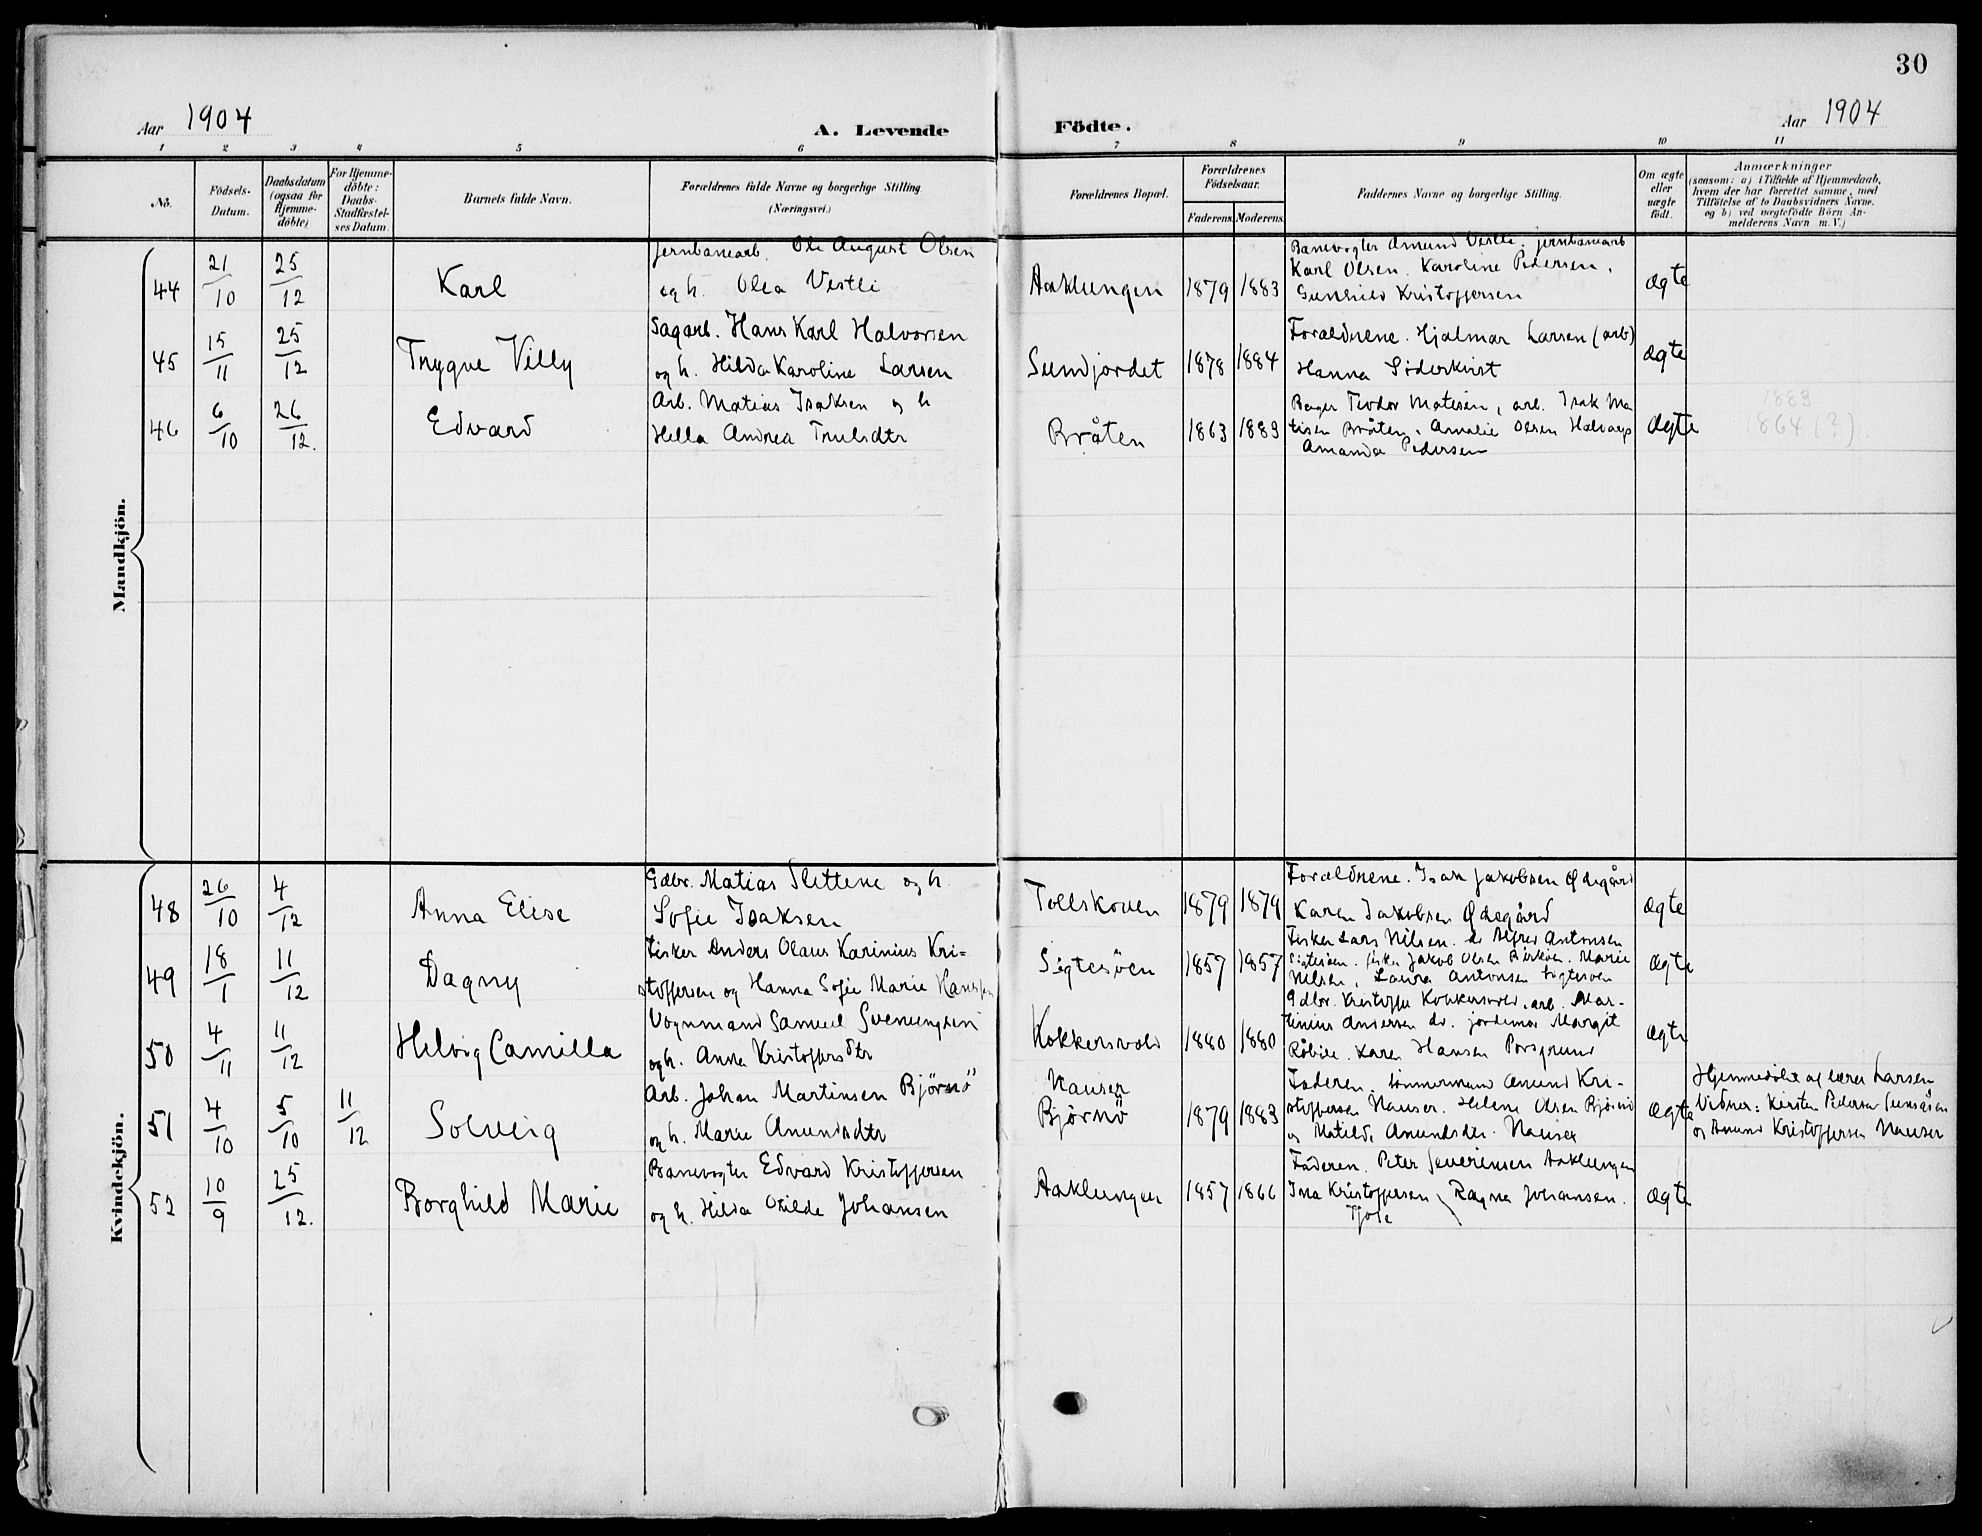 30
Aar 1904
A. Levende Födte.
Aar 1904
1 2 3 4 5 6 7 8 9 10 11
No.
Födsels-
Datum.
Daabsdatum
(ogsaa for
Hjemme-
döbte)
For Hjemme-
döbte:
Daabs-
Stadfæstel-
ses Datum.
Barnets fulde Navn.
Forældrenes fulde Navne og borgerlige Stilling.
(Næringsvei.)
Forældrenes Bopæl.
Forældrenes
Födselsaar.
Faderens. Moderens.
Faddernes Navne og borgerlige Stilling.
Om ægte
eller
uægte
födt.
Anmærkninger
(saasom: a) i Tilfælde af Hjemmedaab,
hvem der har forrettet samme, med
Tilföielse af to Daabsvidners Navne.
og b) ved uægtefödte Börn An-
melderens Navn m. V.)
Mandkjön.
44
21/10
25/12
Karl
Jernbanearb. Ole August Olsen
og h. Olea Vestli
Aaklungen
1879 1883
Banevogter Amund Vestli. jernbanearb
Karl Olsen. Karoline Pedersen.
Gunhild Kristoffersen
ægte
45
15/11
25/12
Trygve Villy
Sagarb. Hans Karl Halvorsen
og h. Hilda Karoline Larsen
Sundjordet
1878 1884
Forældrene. Hjalmar Larsen (arb)
Hanna Söderkvist
ægte
46
6/10
26/12.
Edvard
Arb. Matias Isaksen og h
Hella Andrea Trulsdtr
Bråten
1863 1883
Teodor Matisen, arb. Isak Ma-
tisen Bråten. Amalie Olsen
Amanda Pedersen
ægte
1883
1864 (?)
Kvindekjön.
48
26/10
4/12
Anna Elise
Gdbr. Matias Slettene og h.
Sofie Isaksen
Tollskoven
1879 1879
Forældrene. Isak Jakobsen Ödegård
Karen Jakobsen Ödegård
ægte
49
18/1
11/12
Dagny
Fisker Anders Olaus Karinius Kri-
stoffersen og Hanna Sofie Marie Hansen
Sigtesöen
1857 1857
Fisker Lars Nilsen. do Alfred Antonsen
Sigtesöen. fisker Jakob Olsen Birköen. Marie
Nilsen, Laura Antonsen Sigtesöen
ægte
50
4/11
11/12
Helvig Camilla
Vognmand Samuel Svenungsen
og h. Anna Kristoffersdtr
Kokkersvold
1880 1880
Gdbr. Kristoffer Kokkersvold. arb. Mar-
tinius Andersen do. jordemor Margit
Karen Hansen Porsgrund
ægte
51
4/10
5/10
11/12
Solveig
Arb. Johan Martinsen Björnö
og h. Marie Amundsdtr
Nauser
Björnö
1879 1883
Faderen. tömmermand Amund Kri-
stoffersen Nauser. Helene Olsen Björnö
og Matilde Amundsdtr. Nauser
ægte
Hjemmedöbt af lærer Larsen
Vidner: Kirsten Pedersen
og Amund Kristoffersen Nauser
52
10/9
25/12.
Borghild Marie
Banevogter Edvard Kristoffersen
og h. Hilda Otilde Johansen
Aaklungen
1857 1866
Faderen. Peter Severinsen Aaklungen
Ina Kristoffersen \ Ragna Johansen.
Tjöle
ægte